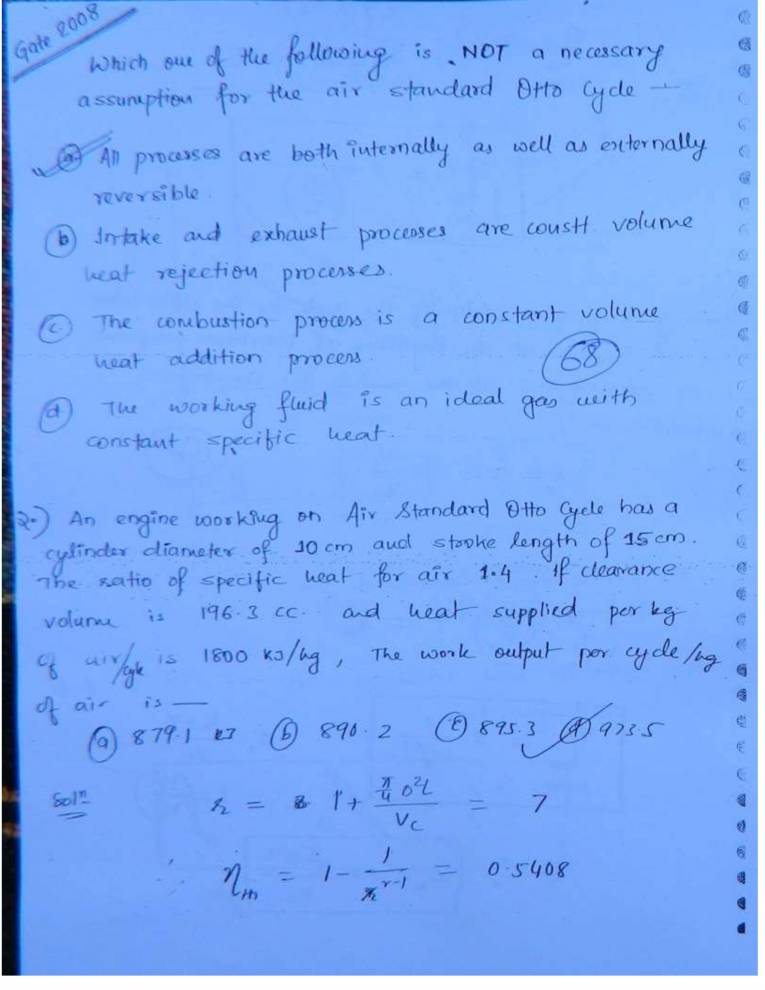 Gate 2008
Which one of the following is NOT a necessary
assumption for the air standard Otto Cycle —
(a) All processes are both internally as well as externally
reversible.
(b) Intake and exhaust processes are constt volume
heat rejection processes.
(c) The combustion process is a constant volume
heat addition process.
68
(d) The working fluid is an ideal gas with
constant specific heat.
2.) An engine working on Air Standard Otto Cycle has a
cylinder diameter of 10 cm and stroke length of 15 cm.
The ratio of specific heat for air 1.4. If clearance
volume is 196.3 cc. and heat supplied per kg
of air/cycle is 1800 KJ/kg, The work output per cycle/kg
of air is —
(a) 879.1 KJ (b) 890.2 (c) 895.3 (d) 973.5
Solⁿ r = 1 + π/4 D²L / Vc = 7
∴ ηth = 1 - 1/r^(γ-1) = 0.5408